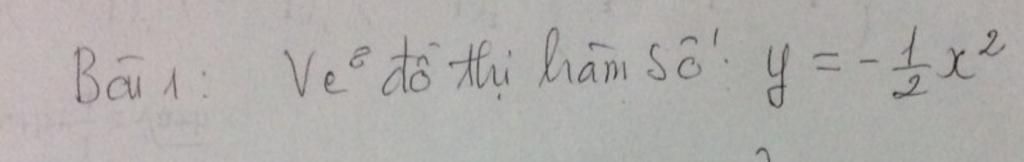 Bài 1: Vẽ đồ thị hàm số: y = -\frac{1}{2}x^2